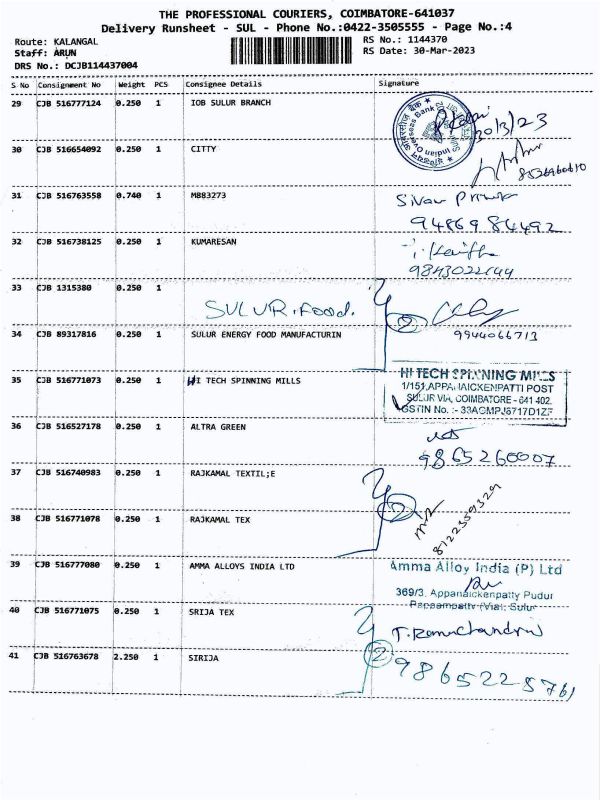 THE PROFESSIONAL COURIERS, COIMBATORE-641037
Delivery Runsheet - SUL - Phone No.:0422-3505555 - Page No.:4
Route: KALANGAL
RS No.: 1144370
Staff: ARUN
RS Date: 30-Mar-2023
DRS No.: DCJB114437004
S No Consignment No Weight PCS Consignee Details Signature
29 CJB 516777124 0.250 1 IOB SULUR BRANCH
Indian Overseas Bank
30/3/23
30 CJB 516654092 0.250 1 CITTY
31 CJB 516763558 0.740 1 M883273 Sivan Priya
9486984492
32 CJB 516738125 0.250 1 KUMARESAN
9843022444
33 CJB 1315380 0.250 1
SULUR.Food. 2
34 CJB 89317816 0.250 1 SULUR ENERGY FOOD MANUFACTURIN 9944066713
35 CJB 516771073 0.250 1 HI TECH SPINNING MILLS
HI TECH SPINNING MILLS
1/151,APPANAICKENPATTI POST
SULUR VIA, COIMBATORE - 641 402.
36 CJB 516527178 0.250 1 ALTRA GREEN
9865260007
37 CJB 516740983 0.250 1 RAJKAMAL TEXTIL;E
2
8122359329
38 CJB 516771078 0.250 1 RAJKAMAL TEX
39 CJB 516777080 0.250 1 AMMA ALLOYS INDIA LTD
Amma Alloy India (P) Ltd
369/3, Appanaickenpatty Pudur
Pappampatty (Via), Sulur
40 CJB 516771075 0.250 1 SRIJA TEX
T.Ramchandran
41 CJB 516763678 2.250 1 SIRIJA
2 9865225761